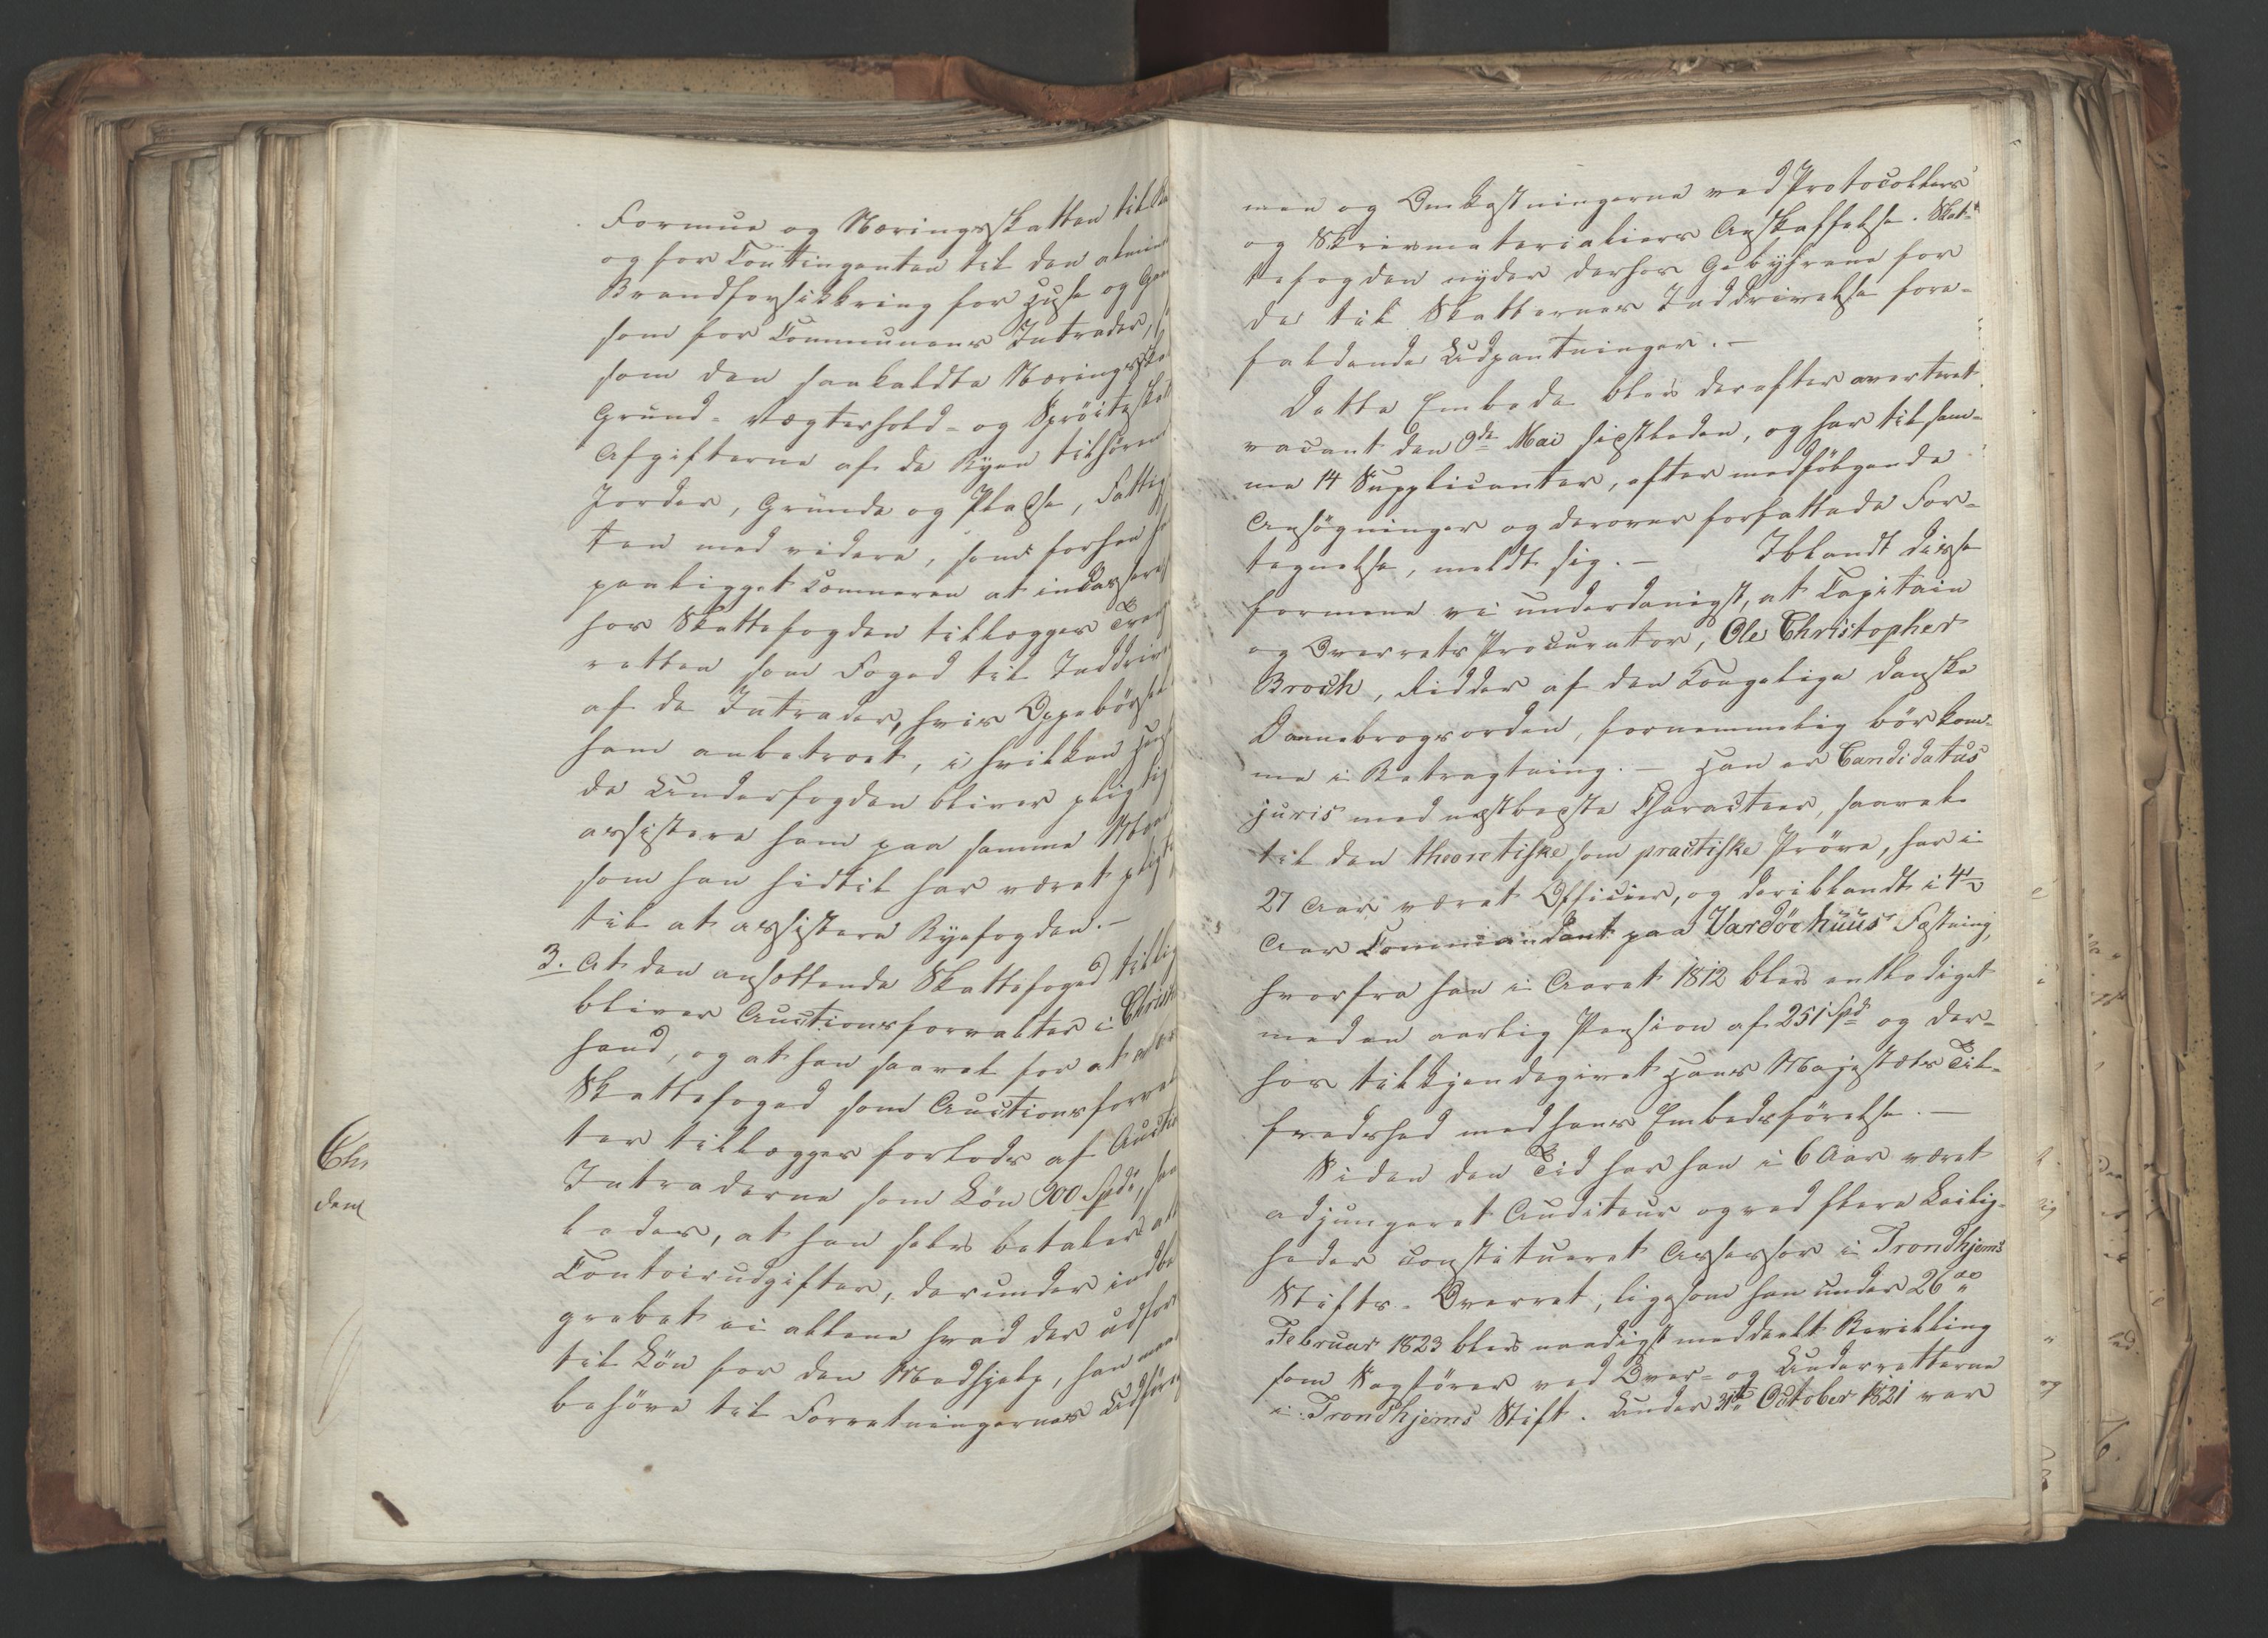 Formue og Næringsskatten til
og for Contingenten til den almin
Brandforsikkring for Huse og Gaa
som for Communens Intrader,
som den saakaldte Næringsska
Grund- Vægterhold- og Sprøiteskat
Afgifterne af de Byen tilhøren
Jorder, Grunde og Pladse, Fattig
ten med videre, som forhen
paaligget Kæmneren at incassere
hos Skattefogden tillægges
retten som Foged til Inddriv
af de Intrader, hvis Oppebørsel
ham anbetroet, i hvilken
de Underfogden bliver pligtig
assistere ham paa samme Maa
som han hidtil har været pligt
til at assistere Byefogden.-
3. At den ansættende Skattefoged tillig
bliver Auctionsforvalter i Christi
sand, og at han saavel for at være
Skattefoged som Auctionsforval
ter tillægges forlods af Auctio
Intraderne som Løn 900 Spd,
ledes, at han selv betaler all
Contoirudgifter, derunder indbe
grebet ei allene hvad der udfor
til Løn for den Medhjelp, han maa
behøve til Forretningernes Udføre
Chr
dem
men og Omkostningerne ved Protocollers
og Skrivmaterialiers Anskaffelse. Skat-
tefogden nyder derhos Gebyhrene for
de til Skatternes Inddrivelse fore-
faldende Udpantninger.-
Dette Embede blev derefter averteret
vacant den 9de Mai sidstleden, og har til sam-
me 14 Supplicanter, efter medfølgende
Ansøgninger og derover forfattede For-
tegnelse, meldt sig.- Iblandt disse
formene vi underdanigst, at Capitain
og Overrets Procurator, Ole Christopher
Broch, Ridder af den Kongelige danske
Dannebrogsorden, fornemmelig bør kom-
me i Betragtning.- Han er Candidatus
juris med næstbedste Characteer, saavel
til den theoretiske som practiske Prøve, har i
27 Aar været Officier, og deriblandt i 4½
Aar Commandant paa Vardöehuus Fæstning,
hvorfra han i Aaret 1812 blev entlediget
med en aarlig Pension af 251 Spd og der-
hos tilkjendegivet Hans Majestæts Til-
fredshed med hans Embedsførelse.-
Siden den Tid har han i 6 Aar været
adjungeret Auditeur og ved flere Leilig-
heder constitueret Assessor i Trondhjems
Stifts- Overret, ligesom han under 26de
Februar 1823 blev naadigst meddeelt Bevilling
som Sagfører ved Over- og Underretterne
i Trondhjems Stift. Under 31te October 1821 var